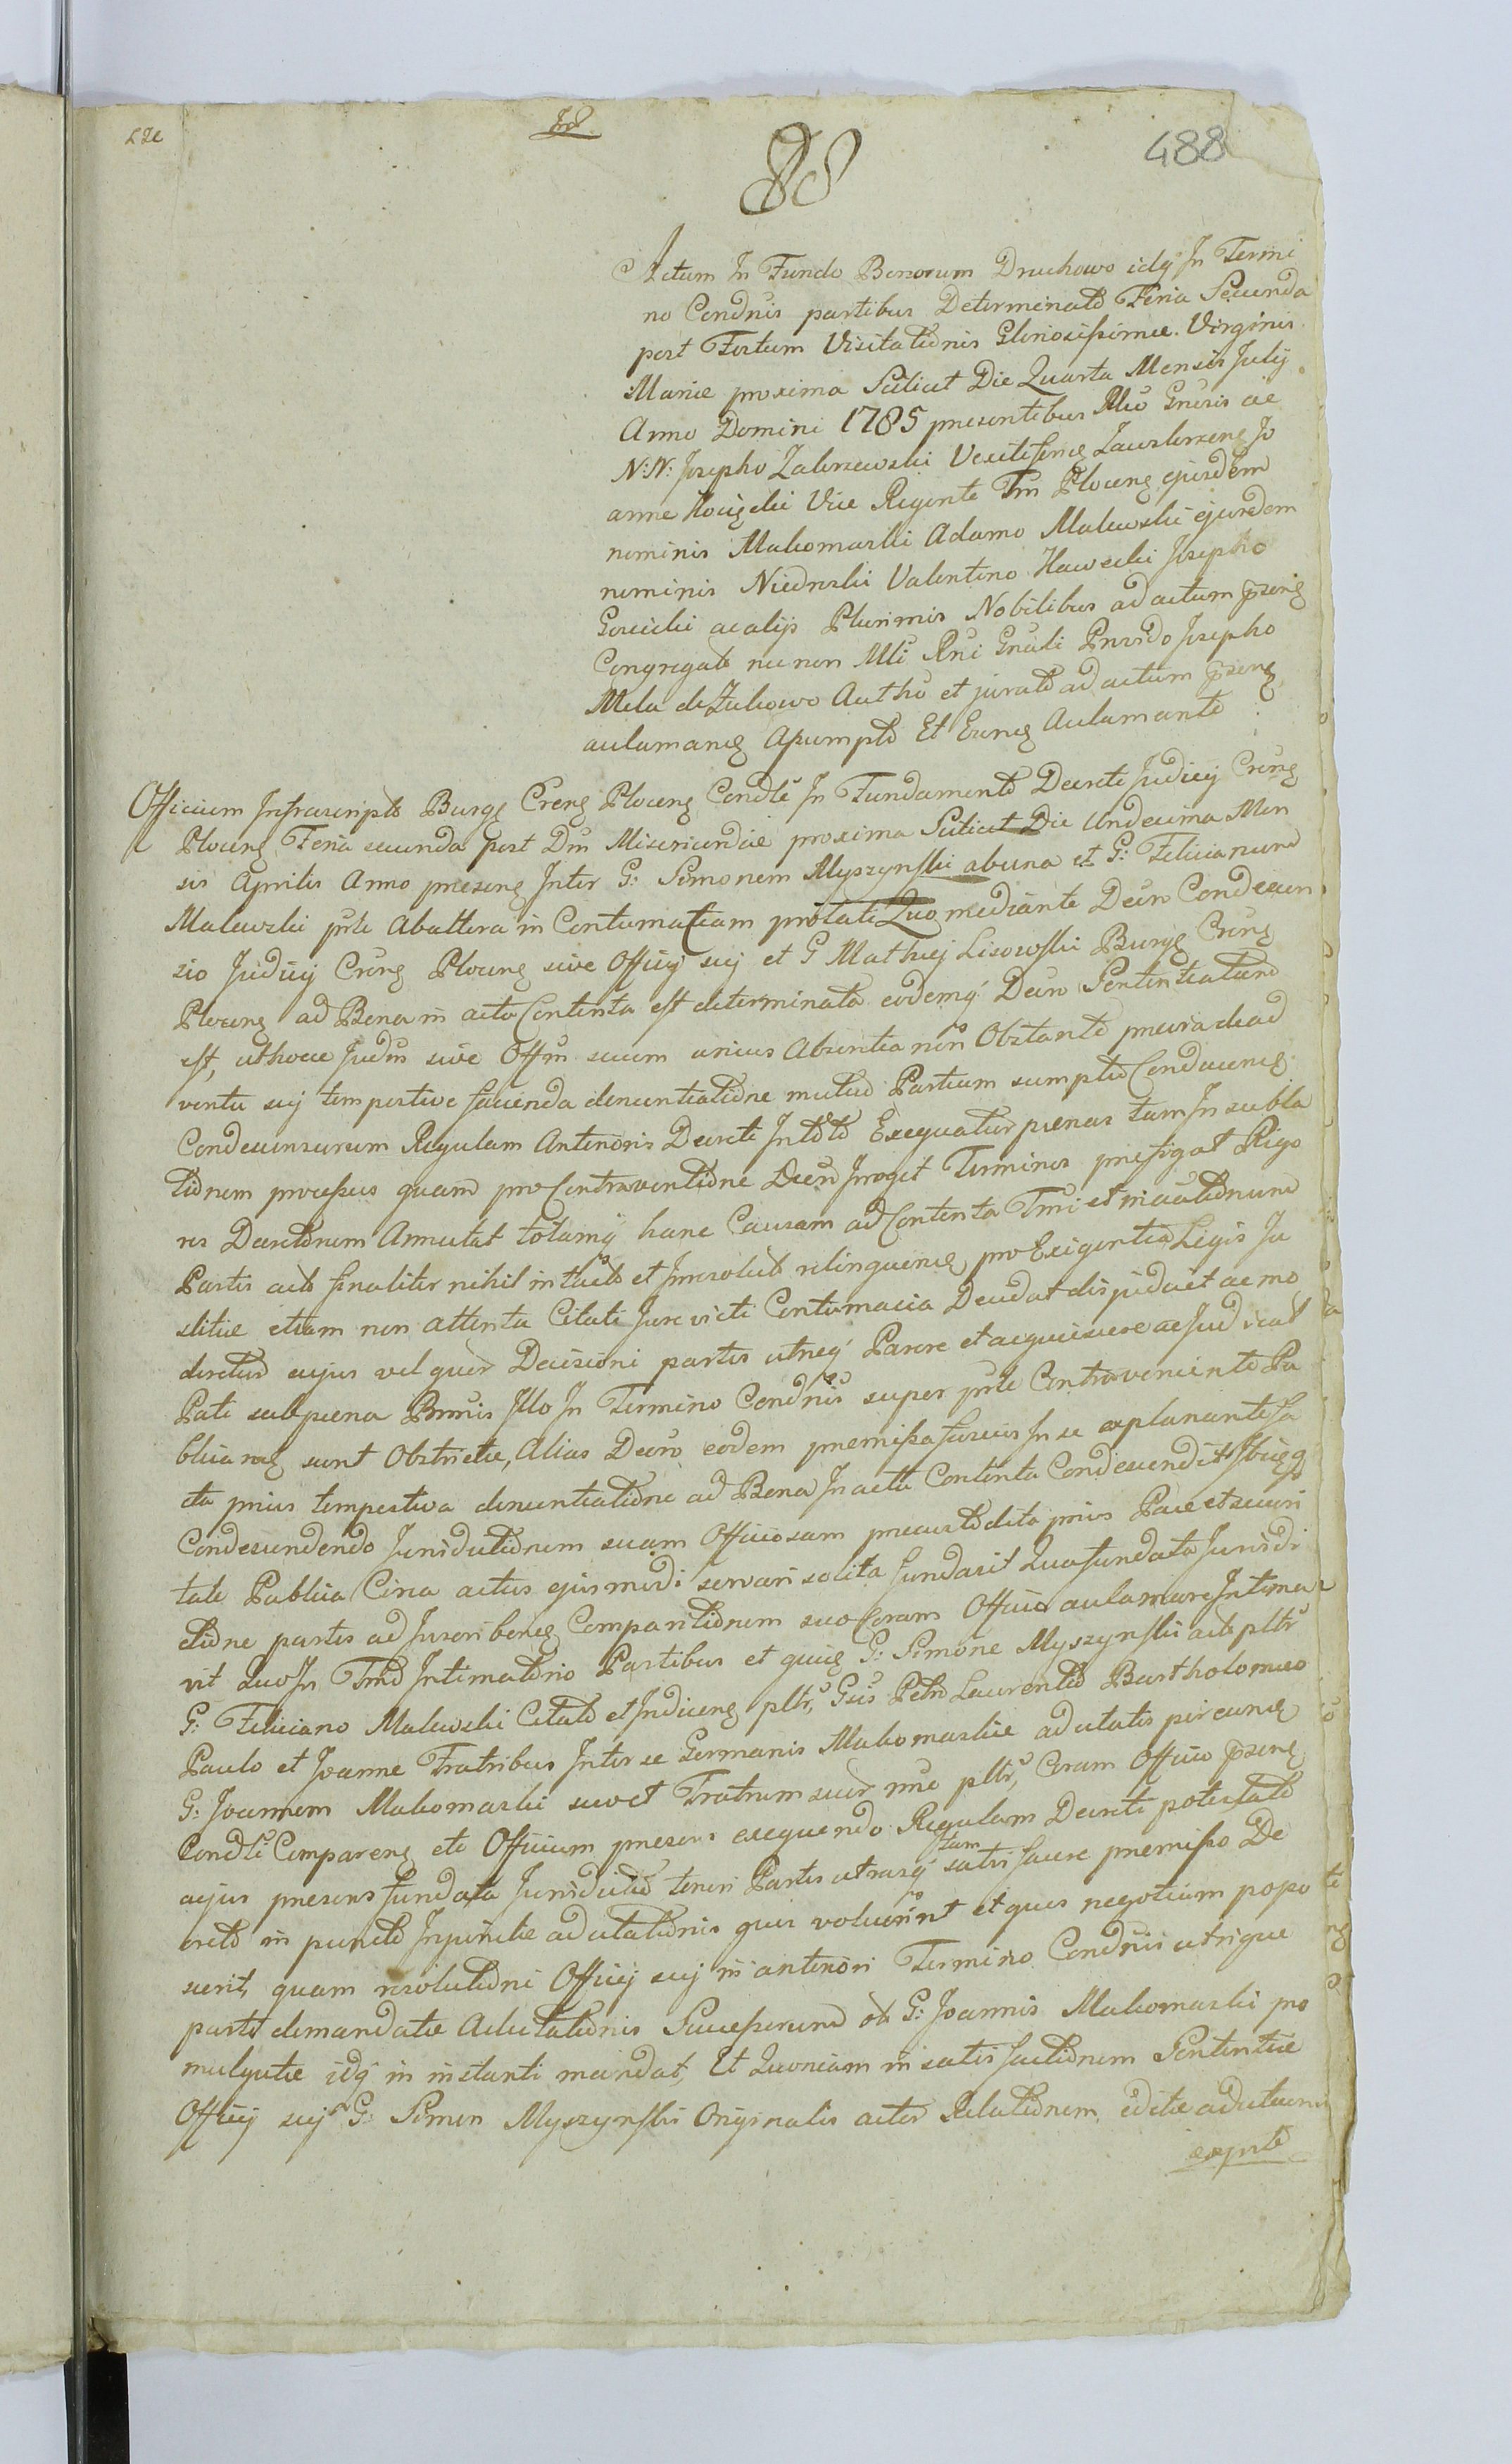 488
Actum In Fundo Bonorum Druchowo idq In Termi
no Condnis partibus Determinato Feria Secunda
post Festum Visitationis Gloriosissimae Virginis
Mariae proxima Scilicet Die Quarta Mensis July
Anno Domini 1785 presentibus ac
N: N: Josepho Zalewski Jo
anne Vice Regente Tm Plocens ejusdem
nominis Makomaski Adamo Malewski ejusdem
nominis Niedrski Valentino Hawecki Josepho
Goscicki ac alijs Plurimis Nobilibus ad actum
Congregatis nec non Rni Gnrali Provido Josepho
Mela de Zukowo Autho et jurato ad actum
aclamans Assumpto Et Eums Aclamante
Officium Infrascriptū Burgs Crens Plocens Condle In Fundamento Decreti Judicij
Plocens Feria secunda post Dm Misericordiae proxima Scilicet Die Undecima Men
sis Aprilis Anno presens Inter G: Simonem Myszynski ab una et G: Felicianum
Malewski ab altera in Contumaciam prolati Quo mediante Decro Condescen
sio Judicij Plocens sive Officij sui et G Mathiej Lisowski Burgs
Plocens ad Bona in acto Contenta est determinata eodemq Decro Sententiatum
est, ut hocce Judm sive Offm suum unius Absentia non Obstante
ventu suj tempestive facienda denuntiatione mutuo Partium sumptu Conducens
Condescensurum Regulam Anterioris Decreti In toto Exequatur paenas tam In subla
tionem processus quam pro Contraventione Decro Irroget Terminos prefigat Rigo
res Decretorum Annectat totamq hanc Causam ad Contenta Tmi et
Partis acto finaliter nihil intacto et Irresoluto relinquens pro Exigentia Legis Ju
stitiae etiam non attenta Citati Jure victi Contumacia Decidat disjudicet ac mo
deretur cujus vel quor Decisioni partes utraeq Parere et acquiescere ac Judicat
Pati sub poena Illo In Termino Condnis super Contraveniente Pu
blicans sunt Obstrictae, Alias Decro eodem premissa fusius In se explanante fa
cta prius tempestiva denuntiatione ad Bona In actu Contenta Condescendit Ibiq
Condescendendo Jurisdictionem suam Officiosam precustodita prius Pace et securi
tate Publica Circa actus ejusmodi servari solita fundavit Qua fundata Jurisdi
ctione partes ad Inscribens Comparitionem suo Coram Officio aclamare Intima
vit Quo In Tmo Intimatorio Partibus et quics G: Simone Myszynski acto
G: Feliciano Malewski Citato et Gsis Petro Laurentio Bartholomeo
Paulo et Joanne Fratribus Inter se Germanis Makomaskie ad
G: Joannem Makomaski suo et Fratrum suor nne Coram Officio
Condli Compares etc Officium presens exequendo Regulam Decreti potestate
cujus presens fundata Jurisdictio teneri Partes utrasq tam satisfacere premisso De
creto in puncto ad citationis quis voluerint et quis negotium popo
scerit, quam resolutioni Officij suj in anteriori Termino Condnis utrique
parti demandatae Successorum ob G: Joannis Makomaski pro
mulgatae idq in instanti mandat, Et Quoniam in satisfactionem Sententiae
Officij suj G: Simon Myszynski Originalis actor Relationem editae